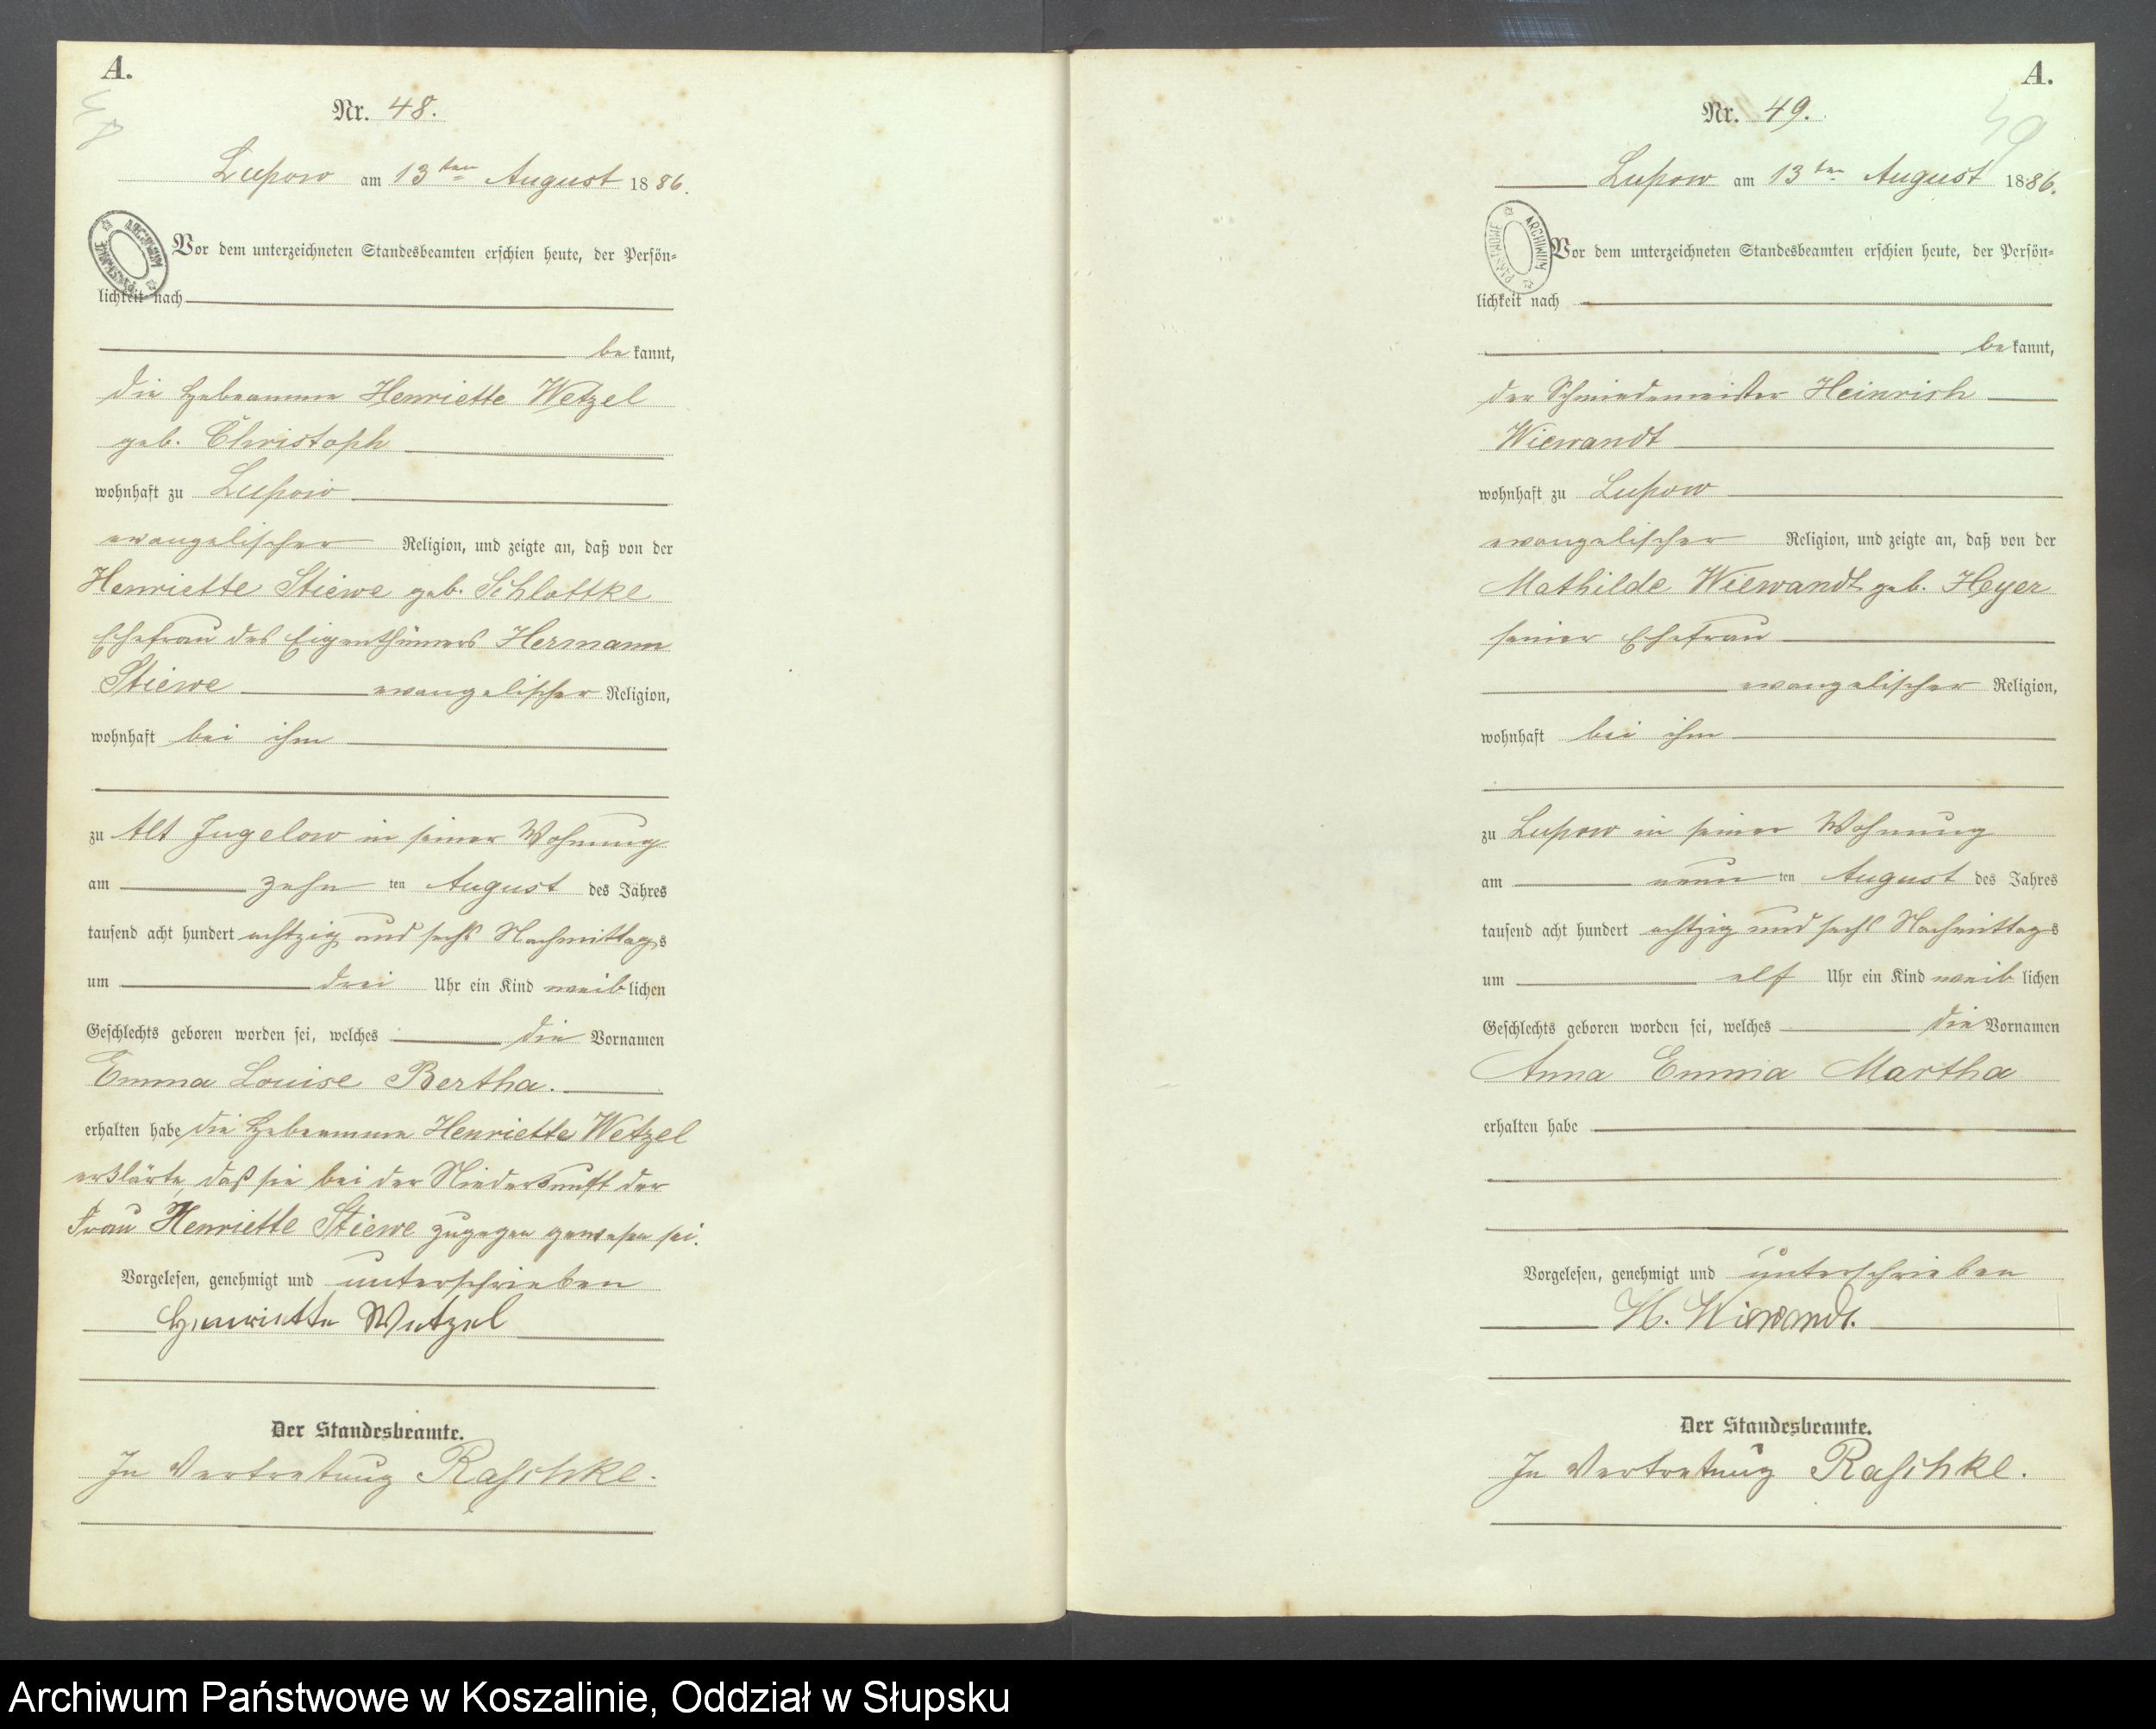 A.
Nr. 48.
Lupow am 13ten August 1886.
Vor dem unterzeichneten Standesbeamten erschien heute, der Persön-
lichkeit nach
bekannt,
die Hebeamme Henriette Wetzel
geb. Christoph
wohnhaft zu Lupow
evangelischer Religion, und zeigte an, daß von der
Henriette Stiewe geb. Schlottke
Ehefrau des Eigenthümers Hermann
Stiewe evangelischer Religion,
wohnhaft bei ihm
zu Alt Jugelow in seiner Wohnung
am zehn ten August des Jahres
tausend acht hundert achtzig und sechs Nachmittags
um drei Uhr ein Kind weiblichen
Geschlechts geboren worden sei, welches die Vornamen
Emma Louise Bertha.
erhalten habe die Hebeamme Henriette Wetzel
erklärte, daß sie bei der Niederkunft der
Frau Henriette Stiewe zugegen gewesen sei.
Vorgelesen, genehmigt und unterschrieben
Henriette Wetzel
Der Standesbeamte.
In Vertretung Raschke.
A.
Nr. 49.
49
Lupow am 13ten August 1886.
ARCHIWUM PAŃSTWOWE
Vor dem unterzeichneten Standesbeamten erschien heute, der Persön-
lichkeit nach
bekannt,
der Schmiedemeister Heinrich
Wiewandt
wohnhaft zu Lupow
evangelischer Religion, und zeigte an, daß von der
Mathilde Wiewandt geb. Heyer
seiner Ehefrau
evangelischer Religion,
wohnhaft bei ihm
zu Lupow in seiner Wohnung
am neun ten August des Jahres
tausend acht hundert achtzig und sechs Nachmittags
um elf Uhr ein Kind weiblichen
Geschlechts geboren worden sei, welches die Vornamen
Anna Emma Martha
erhalten habe
Vorgelesen, genehmigt und unterschrieben
H. Wiewandt.
Der Standesbeamte.
In Vertretung Raschke.
Archiwum Państwowe w Koszalinie, Oddział w Słupsku